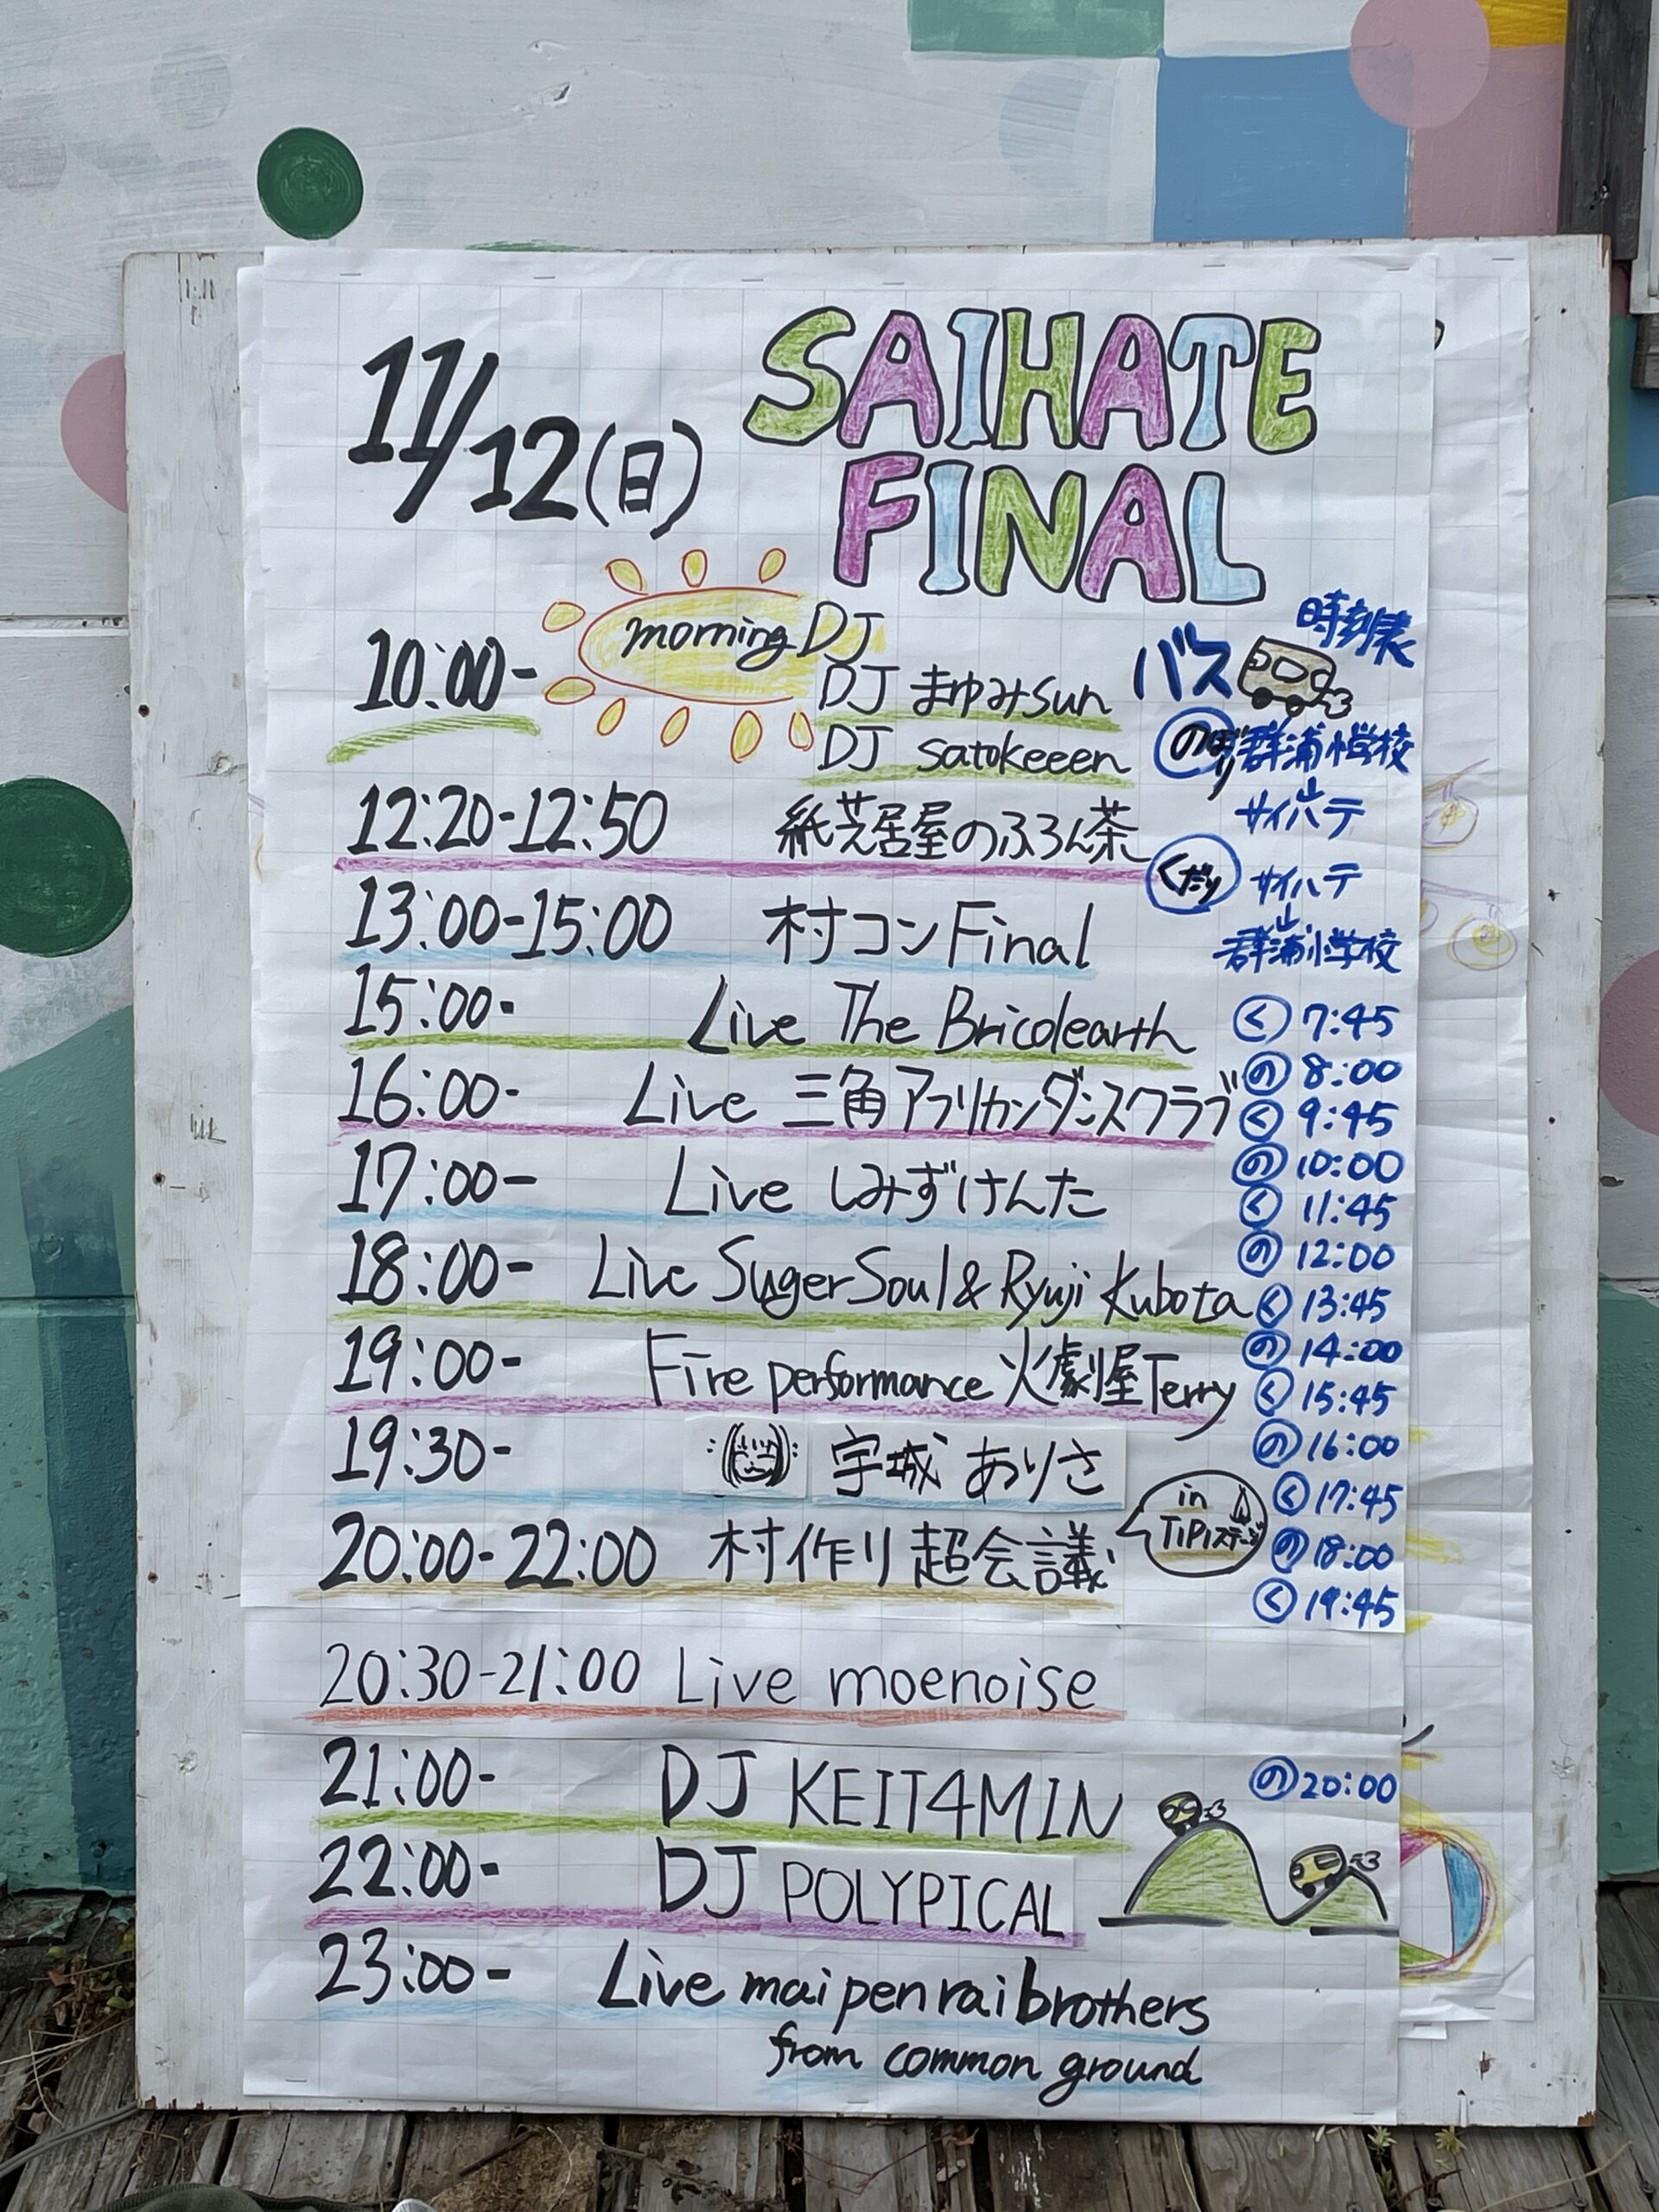 11/12(日)
SAIHATE
FINAL
10:00-
morning DJ
DJ まゆみsun
DJ satokeeen
12:20-12:50 紙芝居屋のふろん茶
13:00-15:00 村コンFinal
15:00- Live The Bricolearth
16:00- Live 三角アフリカンダンスクラブ
17:00- Live しみずけんた
18:00- Live SugerSoul & Ryuji Kubota
19:00- Fire performance 火劇屋Terry
19:30- 宇城 ありさ
20:00-22:00 村作り超会議
in
TIPIステージ
20:30-21:00 Live moenoise
21:00- DJ KEIT4MIN
22:00- DJ POLYPICAL
23:00- Live mai pen rai brothers
from common ground
バス 時刻表
のぼり 群浦小学校
↓
サイハテ
くだり サイハテ
↓
群浦小学校
く 7:45
の 8:00
く 9:45
の 10:00
く 11:45
の 12:00
く 13:45
の 14:00
く 15:45
の 16:00
く 17:45
の 18:00
く 19:45
の 20:00